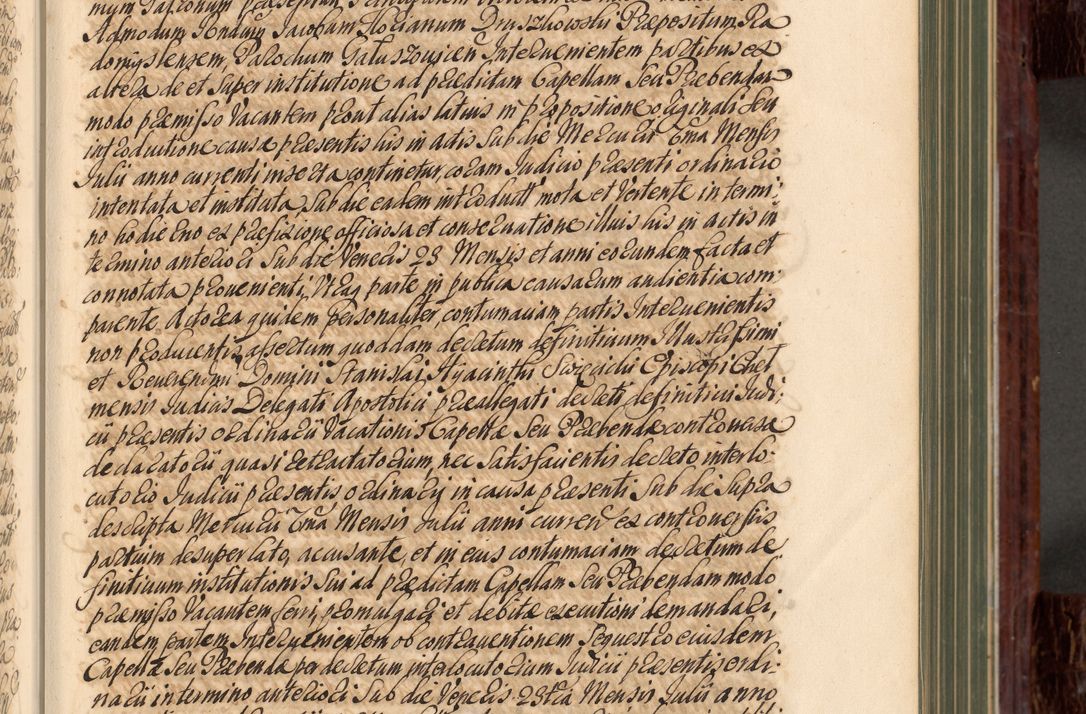 Admodum Rndum Jacobum Florianum Druszkowski Præpositum Ra
domyslensem, Parochum Galuszoviensem Intervenientem partibus ex
altera de et super institutione ad prædictam Capellam Seu Præbendam
modo præmisso Vacantem prout alias latius in præpositione originali Seu
introductione causæ præsentis his in actis Sub die Mercurii 6ma Mensis
Julii anno currenti inserta continetur, coram Judicio præsenti ordinario
intentata et instituta, Sub die eadem introduct' mota et Vertente in termi,
no hodierno ex præfixione officiosa et conservatione illius his in actis in
termino anteriori Sub die Veneris 23 Mensis et anni eorundem facta et
connotata provenienti, Utraq parte in publica causarum audientia com,
parente, Actorea quidem personaliter, contumaciam partis Intervenientis
non producentis, assertum quoddam decretum definitivum Illustrissimi
et Reverendmi Domini Stanislai Hyacinthi Episcopi Chel,
mensis Judicis Delegati Apostolici præallegati decreti definitivi Judi,
cii præsentis ordinarii Vacationis Capellæ Seu Præbendæ controversæ
declaratorii quasi retractatorium, nec Satisfacientis decreto interlo,
cutorio Judicii præsentis ordinarii in causa præsenti Sub die Supra
descripta Mercurii 6ma Mensis Julii anni curren' ex controversiis
partium desuper lato, accusante, et in eius contumaciam decretum de
finitivum institutionis Sui ad prædictam Capellam Seu Præbendam modo
præmisso Vacantem ferri, promulgari et debitæ executioni demandari,
eandem partem Intervenientem ob contraventionem Sequestro eiusdem
Capellæ Seu Præbendæ per decretum interlocutorium Judicii præsentis ordi,
narii in termino anteriori Sub die Veneris 23tia Mensis Julii anno